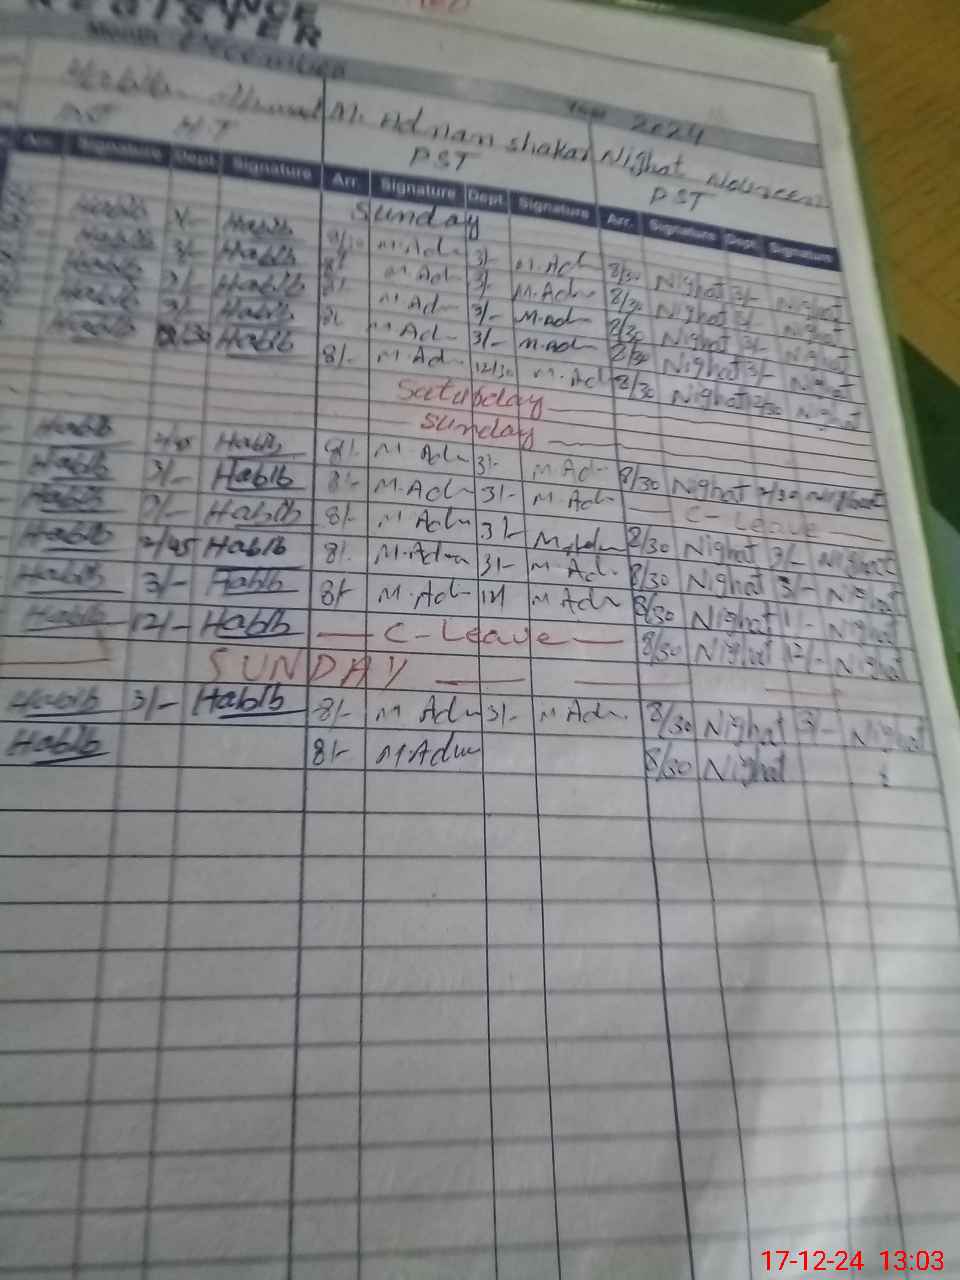 REGISTER
Month December Year 2024
M. Adnan shakar Nighat Noureen
H.T PST PST
Arr. Signature Dept. Signature Arr. Signature Dept. Signature Arr. Signature Dept. Signature
Sunday
Hablb Hablb M.Ad 3/- M.Ad 8/30 Nighat 3/- Nighat
Hablb 3/- Hablb M.Ad 3/- M.Ad 8/30 Nighat 3/- Nighat
Hablb 3/- Hablb M.Ad 3/- M.ad 8/30 Nighat 3/- Nighat
Hablb 3/- Hablb M.Ad 3/- M.ad 8/30 Nighat 3/- Nighat
Hablb 12/30 Hablb 8/- M.Ad 12/30 M.Ad 8/30 Nighat 12/30 Nighat
Saturday
Sunday
Hablb Hablb 8/- M Adn 3/- M Ad 8/30 Nighat Nighat
Hablb 3/- Hablb 8/- M.Adn 3/- M Adn C-Leave
Hablb Hablb 8/- M Adn 3/- M.Adn 8/30 Nighat 3/- Nighat
Hablb 2/45 Hablb 8/- M.Adn 3/- M.Ad 8/30 Nighat 3/- Nighat
Hablb 3/- Hablb 8/- M.Ad M Adn 8/30 Nighat 1/- Nighat
Hablb 12/- Hablb C-Leave 8/30 Nighat 12/- Nighat
SUNDAY
Hablb 3/- Hablb 8/- M Adn 3/- M Adn. 8/30 Nighat 3/- Nighat
Hablb 8/- M.Adn 8/30 Nighat
17-12-24 13:03